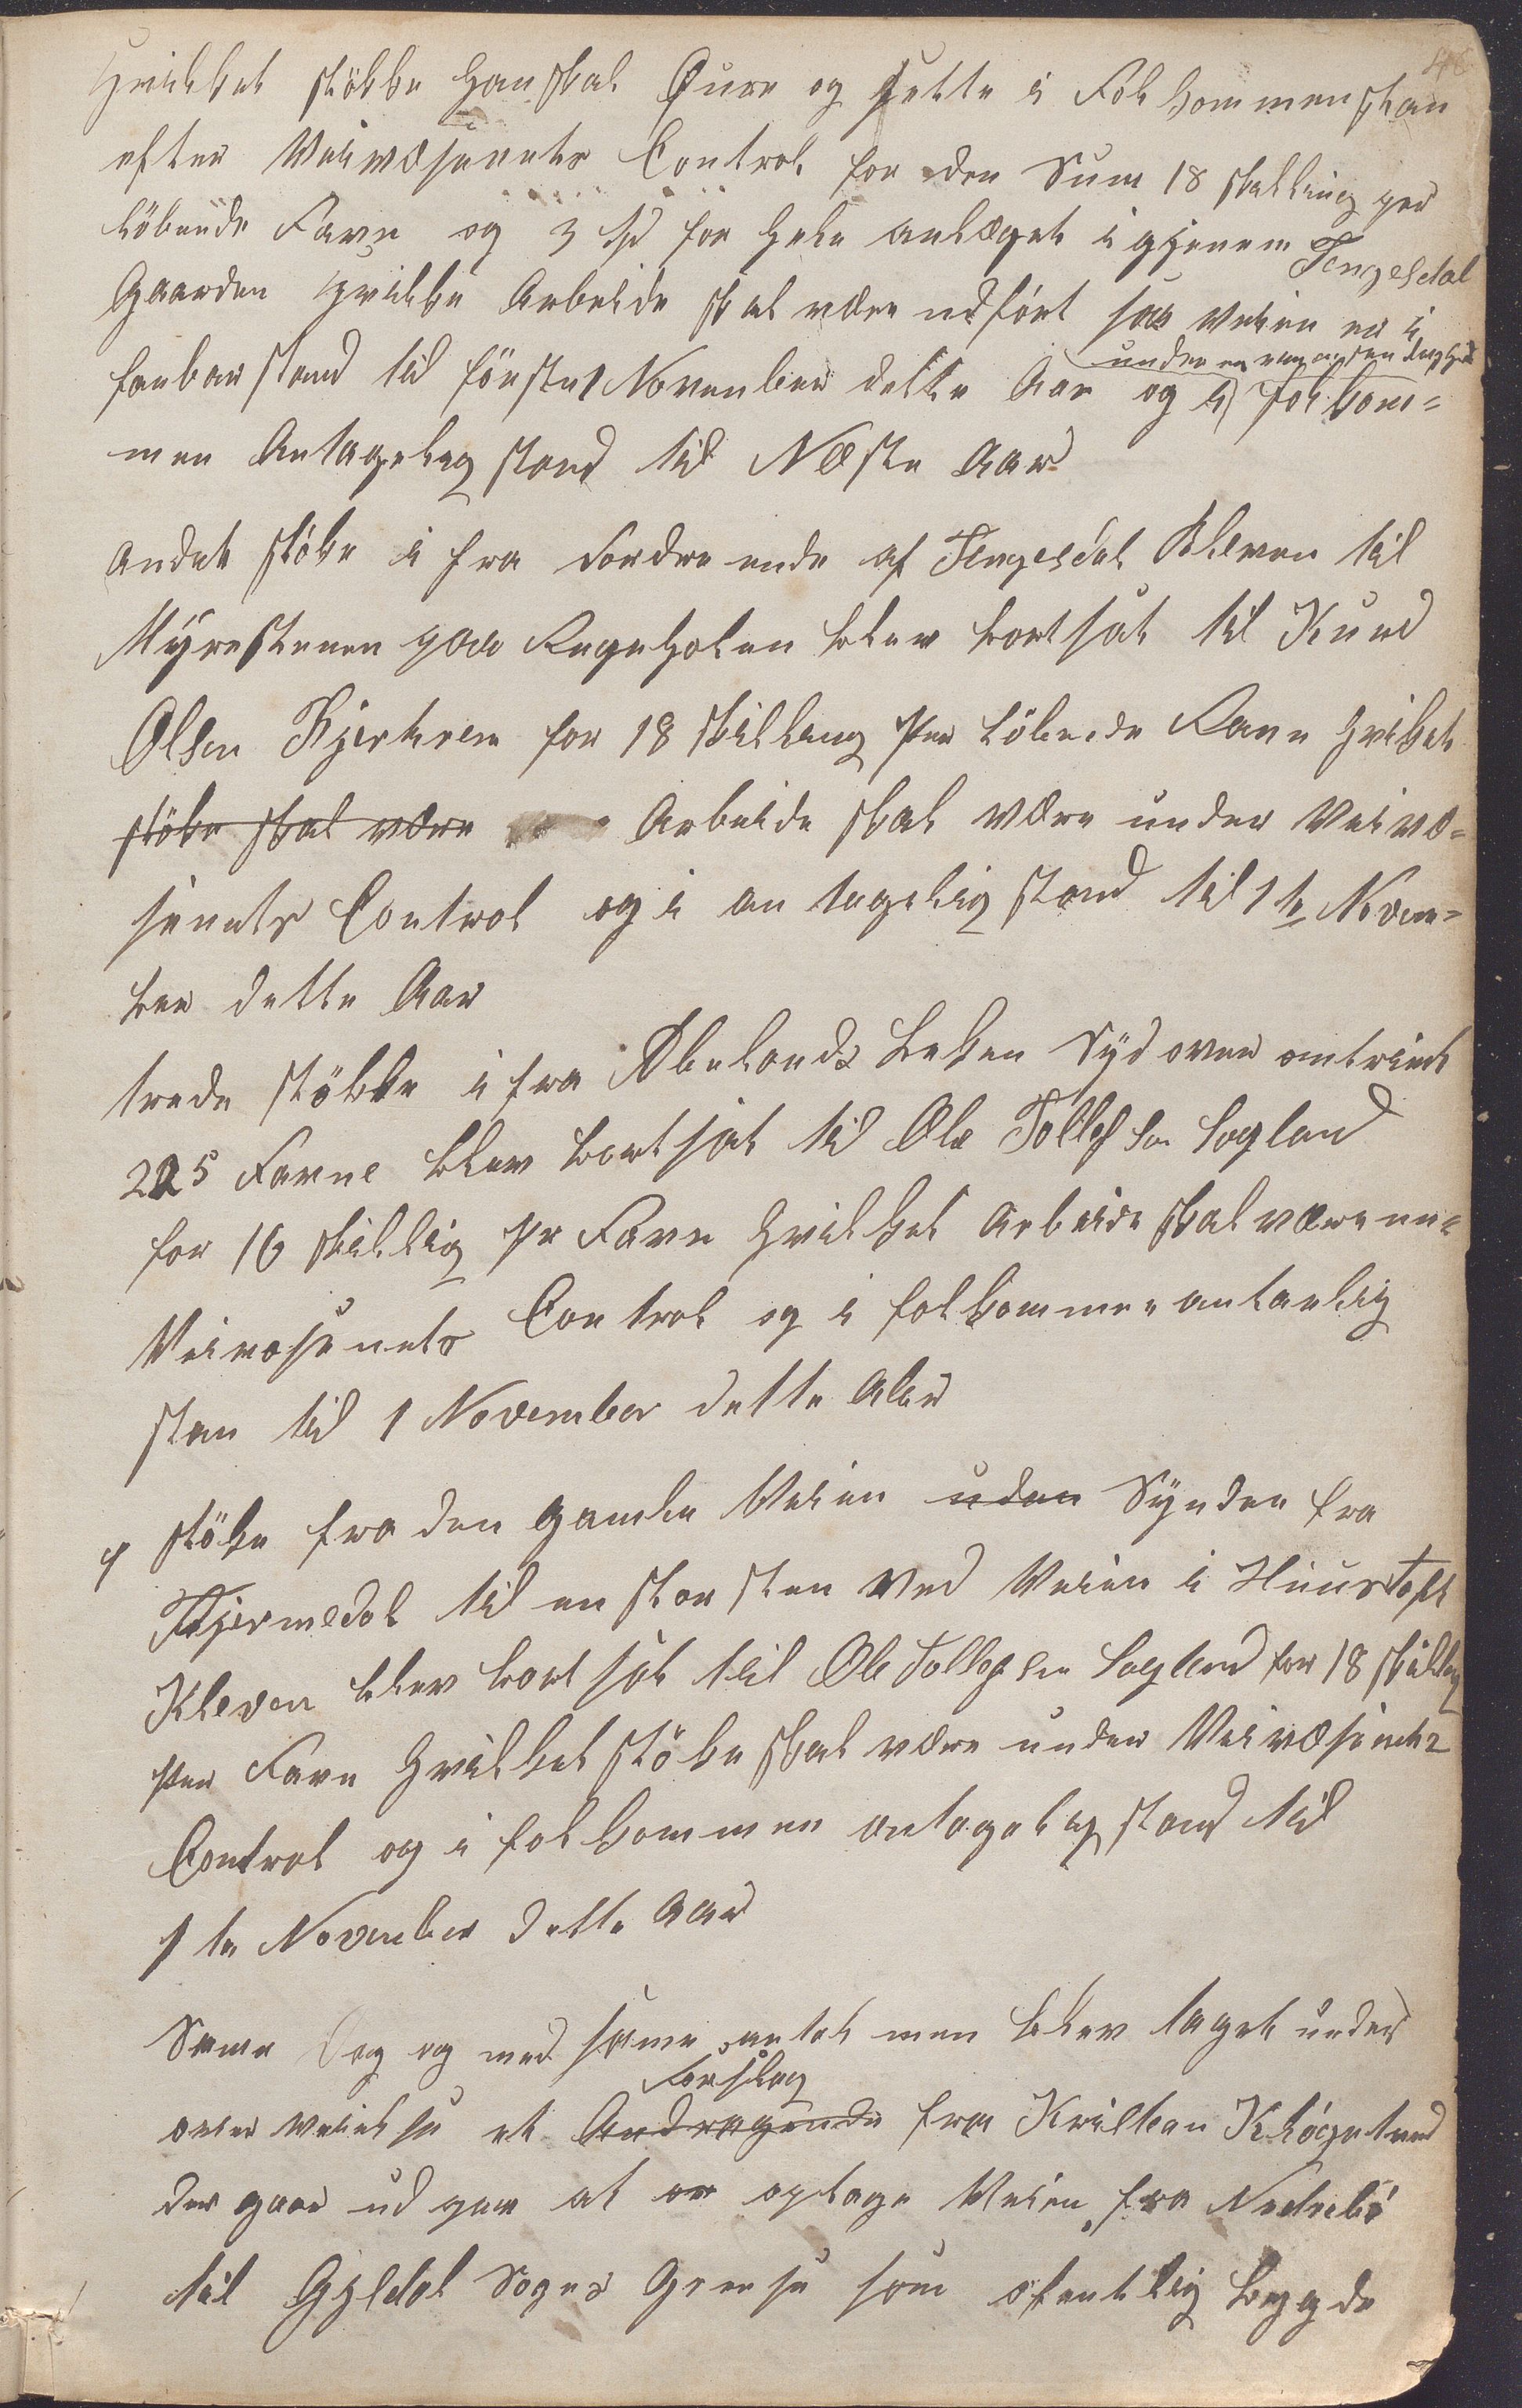 Hvilket stökke han skal Gure og sette i Folkommen stan
efter Veivæsenets Control for den Sum 18 skilling per
löbende Favn og 3 spd for hele anlæget igjenem Tengesdal
Gaarden hvilke Arbeide skal være udfört saa Veien er i
farbar stand til förste 1 November dette Aar og i Folkom=
under en
men Antagelig stand til Næste Aar
Andet stöke i fra Nordre ende af Tengesdal Kleven til
Myrestenen paa Rageholen blev bortsat til Knud
Olsen Bjerkrem for 18 skilling per löbende Favn hvilket
stöke skal være Arbeide skal være under Veivæ=
senets Control og i antagelig stand til 1te Novem=
ber dette Aar
trede stökke i fra Ábelands beken Syd over omtrient
225 Favne blev bortsat til Ole Tollefsen Sogland
for 16 skillig pr Favn hvilket Arbeide skal være un=
Veivæsenets Control og i folkommen antaelig
stan til 1 November dette Aar
4 stöke fra den gamle Veien uden Synden fra
Fjermedal til en stor sten ved Veien i Huustoft
Kleven blev bortsat til Ole Tollefsen Sogland for 18 skilling
per Favn hvilket stöke skal være under Veivæsenets
Control og i folkommen antagelig stand til
1te November dette Aar
Same Dag og med same antal men blev taget under
Forslag
over veielse et Andragende fra Kristian Klögetved
der gaar ud paa at op optage Veien fra Nedrebö
til Gyldal Sogns Grense som ofentlig bygde